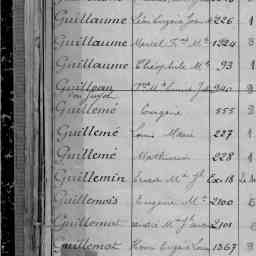 Guillaume Léon Eugène Jean 226 1
Guillaume Marcel F. M. 1224 3
Guillaume Théophile M. 93 1
Guillean 940
Guillemé Eugène 555 2
Guillemé Louis Marie 227 1
Guillemé Mathurin 228 1
Guillemin M. J. Ex-18
Guillemois Eugène M. 2100 6
Guillemot André M. J. 2101 6
Guillemot Henri Eugène Louis 1367 3